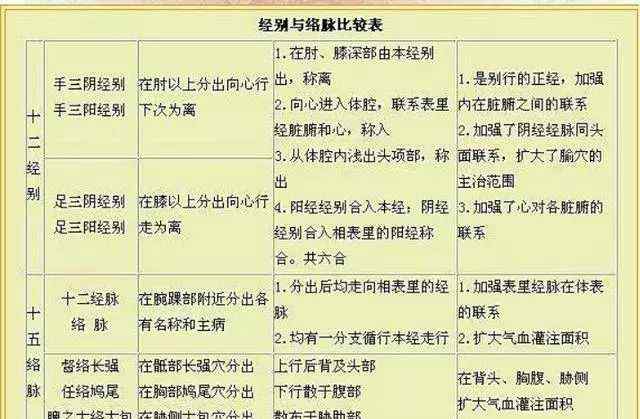 经别与络脉比较表
十二经别
手三阴经别
手三阳经别
在肘以上分出向心行
下次为离
1.在肘、膝深部由本经别
出，称离
2.向心进入体腔，联系表里
经脏腑和心，称入
3.从体腔内浅出头项部，称
出
4.阳经经别合入本经；阴经
经别合入相表里的阳经称
合。共六合
1.是别行的正经，加强
内在脏腑之间的联系
2.加强了阴经经脉同头
面联系，扩大了腧穴的
主治范围
3.加强了心对各脏腑的
联系
足三阴经别
足三阳经别
在膝以上分出向心行
走为离
十五络脉
十二经脉
络 脉
在腕踝部附近分出各
有名称和主病
1.分出后均走向相表里的经
脉
2.均有一分支循行本经走行
1.加强表里经脉在体表
的联系
2.扩大气血灌注面积
督络长强
任络鸠尾
脾之大络大包
在骶部长强穴分出
在胸部鸠尾穴分出
在胁侧大包穴分出
上行后背及头部
下行散于腹部
散布于胁肋部
在背头、胸腹、胁侧
扩大气血灌注面积